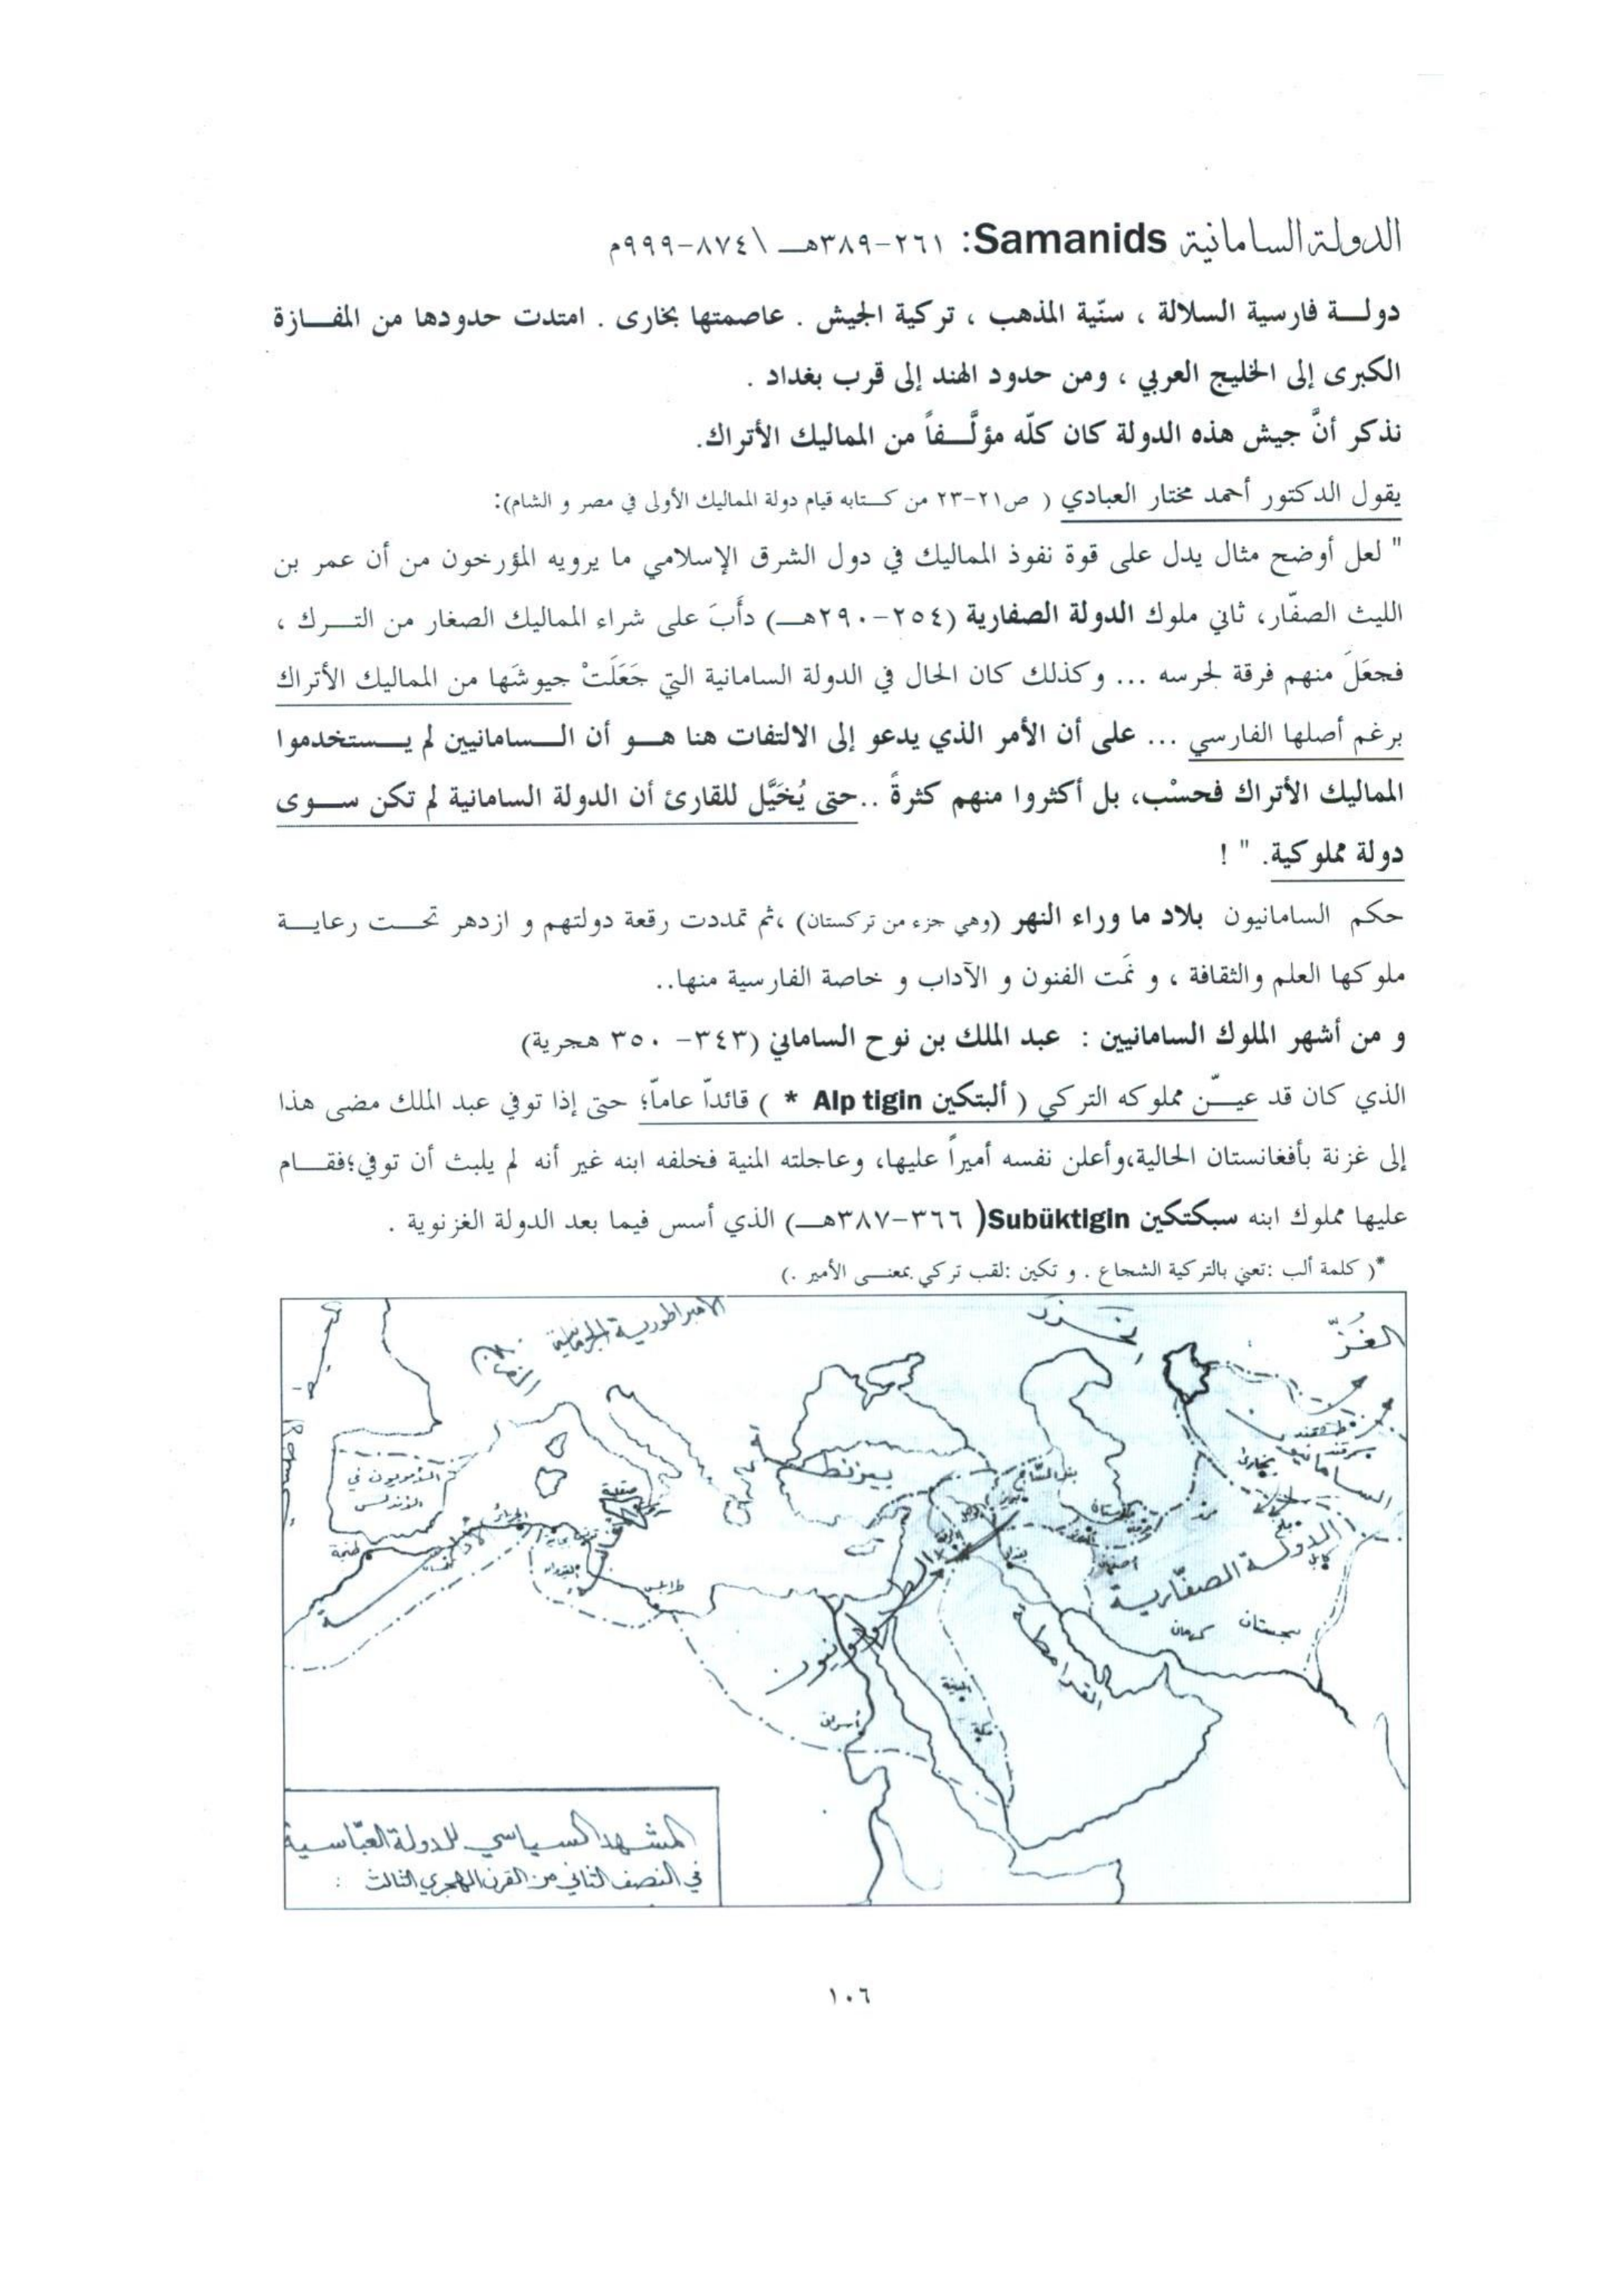 الدولة السامانية Samanids: ٢٦١-٣٨٩هـ \٨٧٤-٩٩٩م
دولة فارسية السلالة ، سنّية المذهب ، تركية الجيش . عاصمتها بخارى . امتدت حدودها من المفازة
الكبرى إلى الخليج العربي ، ومن حدود الهند إلى قرب بغداد .
نذكر أنَّ جيش هذه الدولة كان كلّه مؤلَّفاً من المماليك الأتراك.
يقول الدكتور أحمد مختار العبادي ( ص٢١-٢٣ من كتابه قيام دولة المماليك الأولى في مصر و الشام):
" لعل أوضح مثال يدل على قوة نفوذ المماليك في دول الشرق الإسلامي ما يرويه المؤرخون من أن عمر بن
الليث الصفّار، ثاني ملوك الدولة الصفارية (٢٥٤-٢٩٠هـ) دأَبَ على شراء المماليك الصغار من الترك ،
فجعَلَ منهم فرقة لحرسه ... وكذلك كان الحال في الدولة السامانية التي جَعَلَتْ جيوشَها من المماليك الأتراك
برغم أصلها الفارسي ... على أن الأمر الذي يدعو إلى الالتفات هنا هو أن السامانيين لم يستخدموا
المماليك الأتراك فحسْب، بل أكثروا منهم كثرةً ..حتى يُخَيَّل للقارئ أن الدولة السامانية لم تكن سوى
دولة مملوكية. " !
حكم السامانيون بلاد ما وراء النهر (وهي جزء من تركستان) ،ثم تمددت رقعة دولتهم و ازدهر تحت رعاية
ملوكها العلم والثقافة ، و نمَت الفنون و الآداب و خاصة الفارسية منها..
و من أشهر الملوك السامانيين : عبد الملك بن نوح الساماني (٣٤٣- ٣٥٠ هجرية)
الذي كان قد عيّن مملوكه التركي ( ألبتكين Alp tigin * ) قائداً عاماً؛ حتى إذا توفي عبد الملك مضى هذا
إلى غزنة بأفغانستان الحالية،وأعلن نفسه أميراً عليها، وعاجلته المنية فخلفه ابنه غير أنه لم يلبث أن توفي؛فقام
عليها مملوك ابنه سبكتكين Subüktigin( ٣٦٦-٣٨٧هـ) الذي أسس فيما بعد الدولة الغزنوية .
*( كلمة ألب :تعني بالتركية الشجاع . و تكين :لقب تركي بمعنى الأمير .)
الامبراطورية الجرمانية
الخزر
الغُزّ
بيزنطة
الأمويون في
الأندلس
صقلية
طنجة
القيروان
طرابلس
سمرقند
بخارى
السامانيون
مرو
بلخ
كابل
الدولة الصفّارية
سجستان
كرمان
بنو الساج
القرامطة
المدينة
مكة
أسوان
المشهد السياسي للدولة العبّاسية
في النصف الثاني من القرن الهجري الثالث :
١٠٦